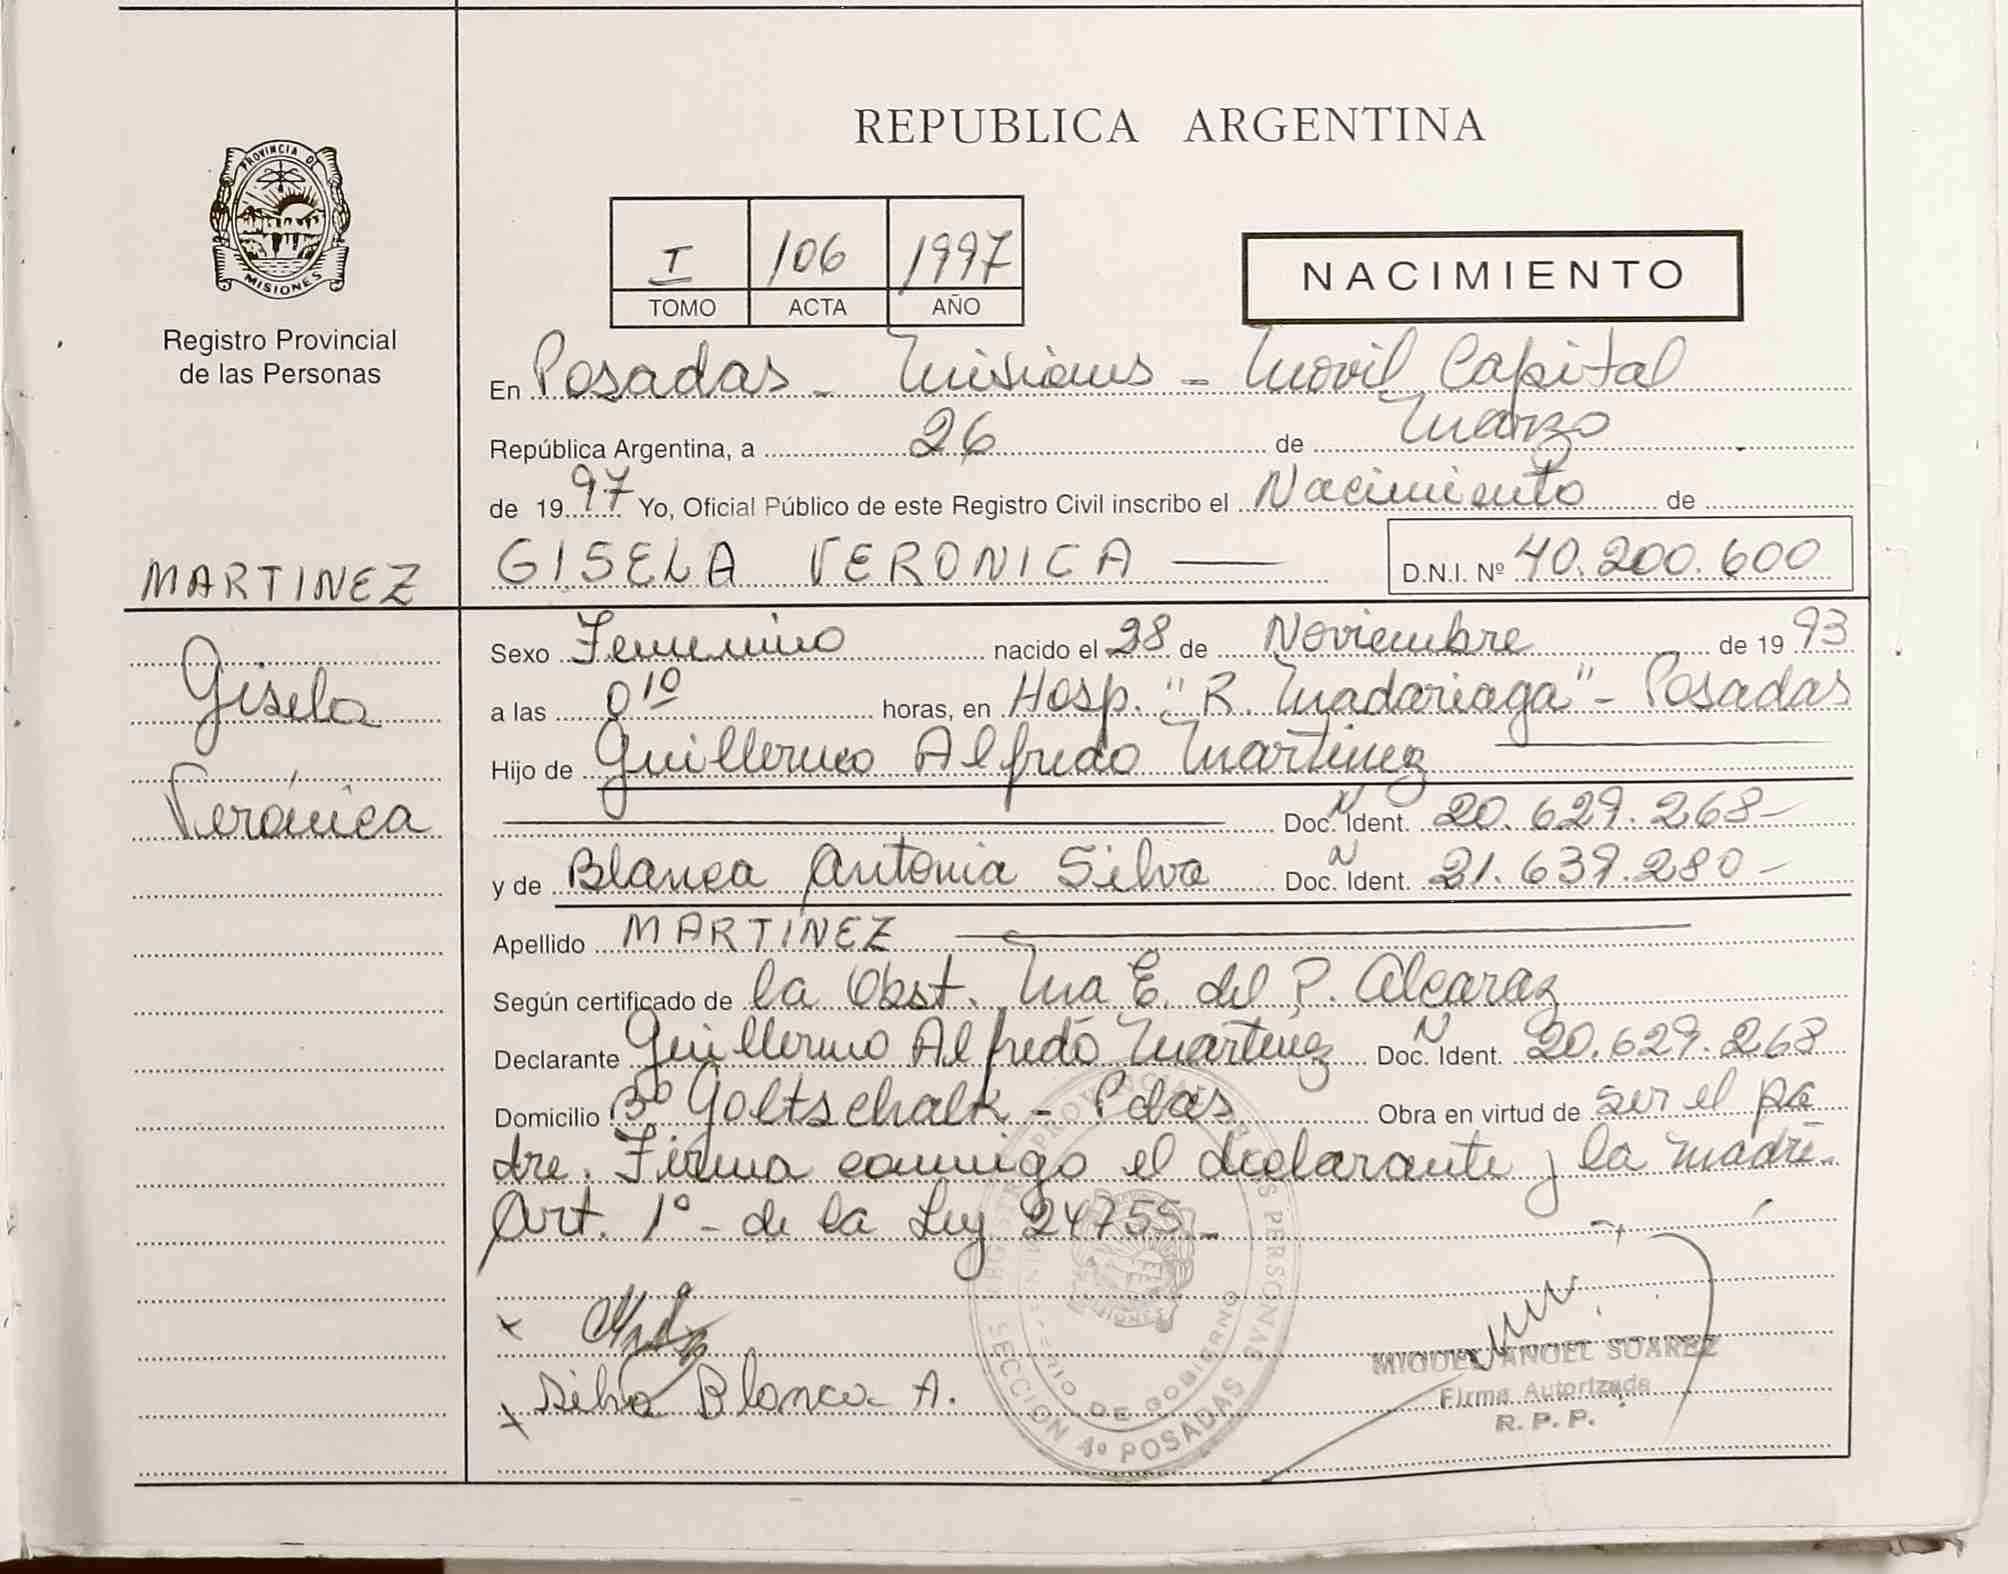 REPUBLICA ARGENTINA
PROVINCIA DE
MISIONES
Registro Provincial
de las Personas
I 106 1997
TOMO ACTA AÑO
NACIMIENTO
En Posadas - Misiones - Movil Capital
República Argentina, a 26 de Marzo
de 1997 Yo, Oficial Público de este Registro Civil inscribo el Nacimiento de
MARTINEZ
GISELA VERONICA D.N.I. Nº 40.200.600
Gisela
Verónica
Sexo Femenino nacido el 28 de Noviembre de 1993
a las 0 10 horas, en Hosp. "R. Madariaga" - Posadas
Hijo de Guillermo Alfredo Martinez
Doc. N Ident. 20.629.268-
y de Blanca Antonia Silva Doc. N Ident. 21.639.280-
Apellido MARTINEZ
Según certificado de la Obst. Ma E. del P. Alcaraz
Declarante Guillermo Alfredo Martinez Doc. N Ident. 20.629.268
Domicilio Bº Goltschalk - Pdas Obra en virtud de ser el pa
dre. Firma conmigo el declarante y la madre.
Art. 1º - de la Ley 24755.-
x
x Silva Blanca A.
MIGUEL ANGEL SUAREZ
Firma Autorizada
R. P. P.
SECCION 1º POSADAS
DE GOBIERNO